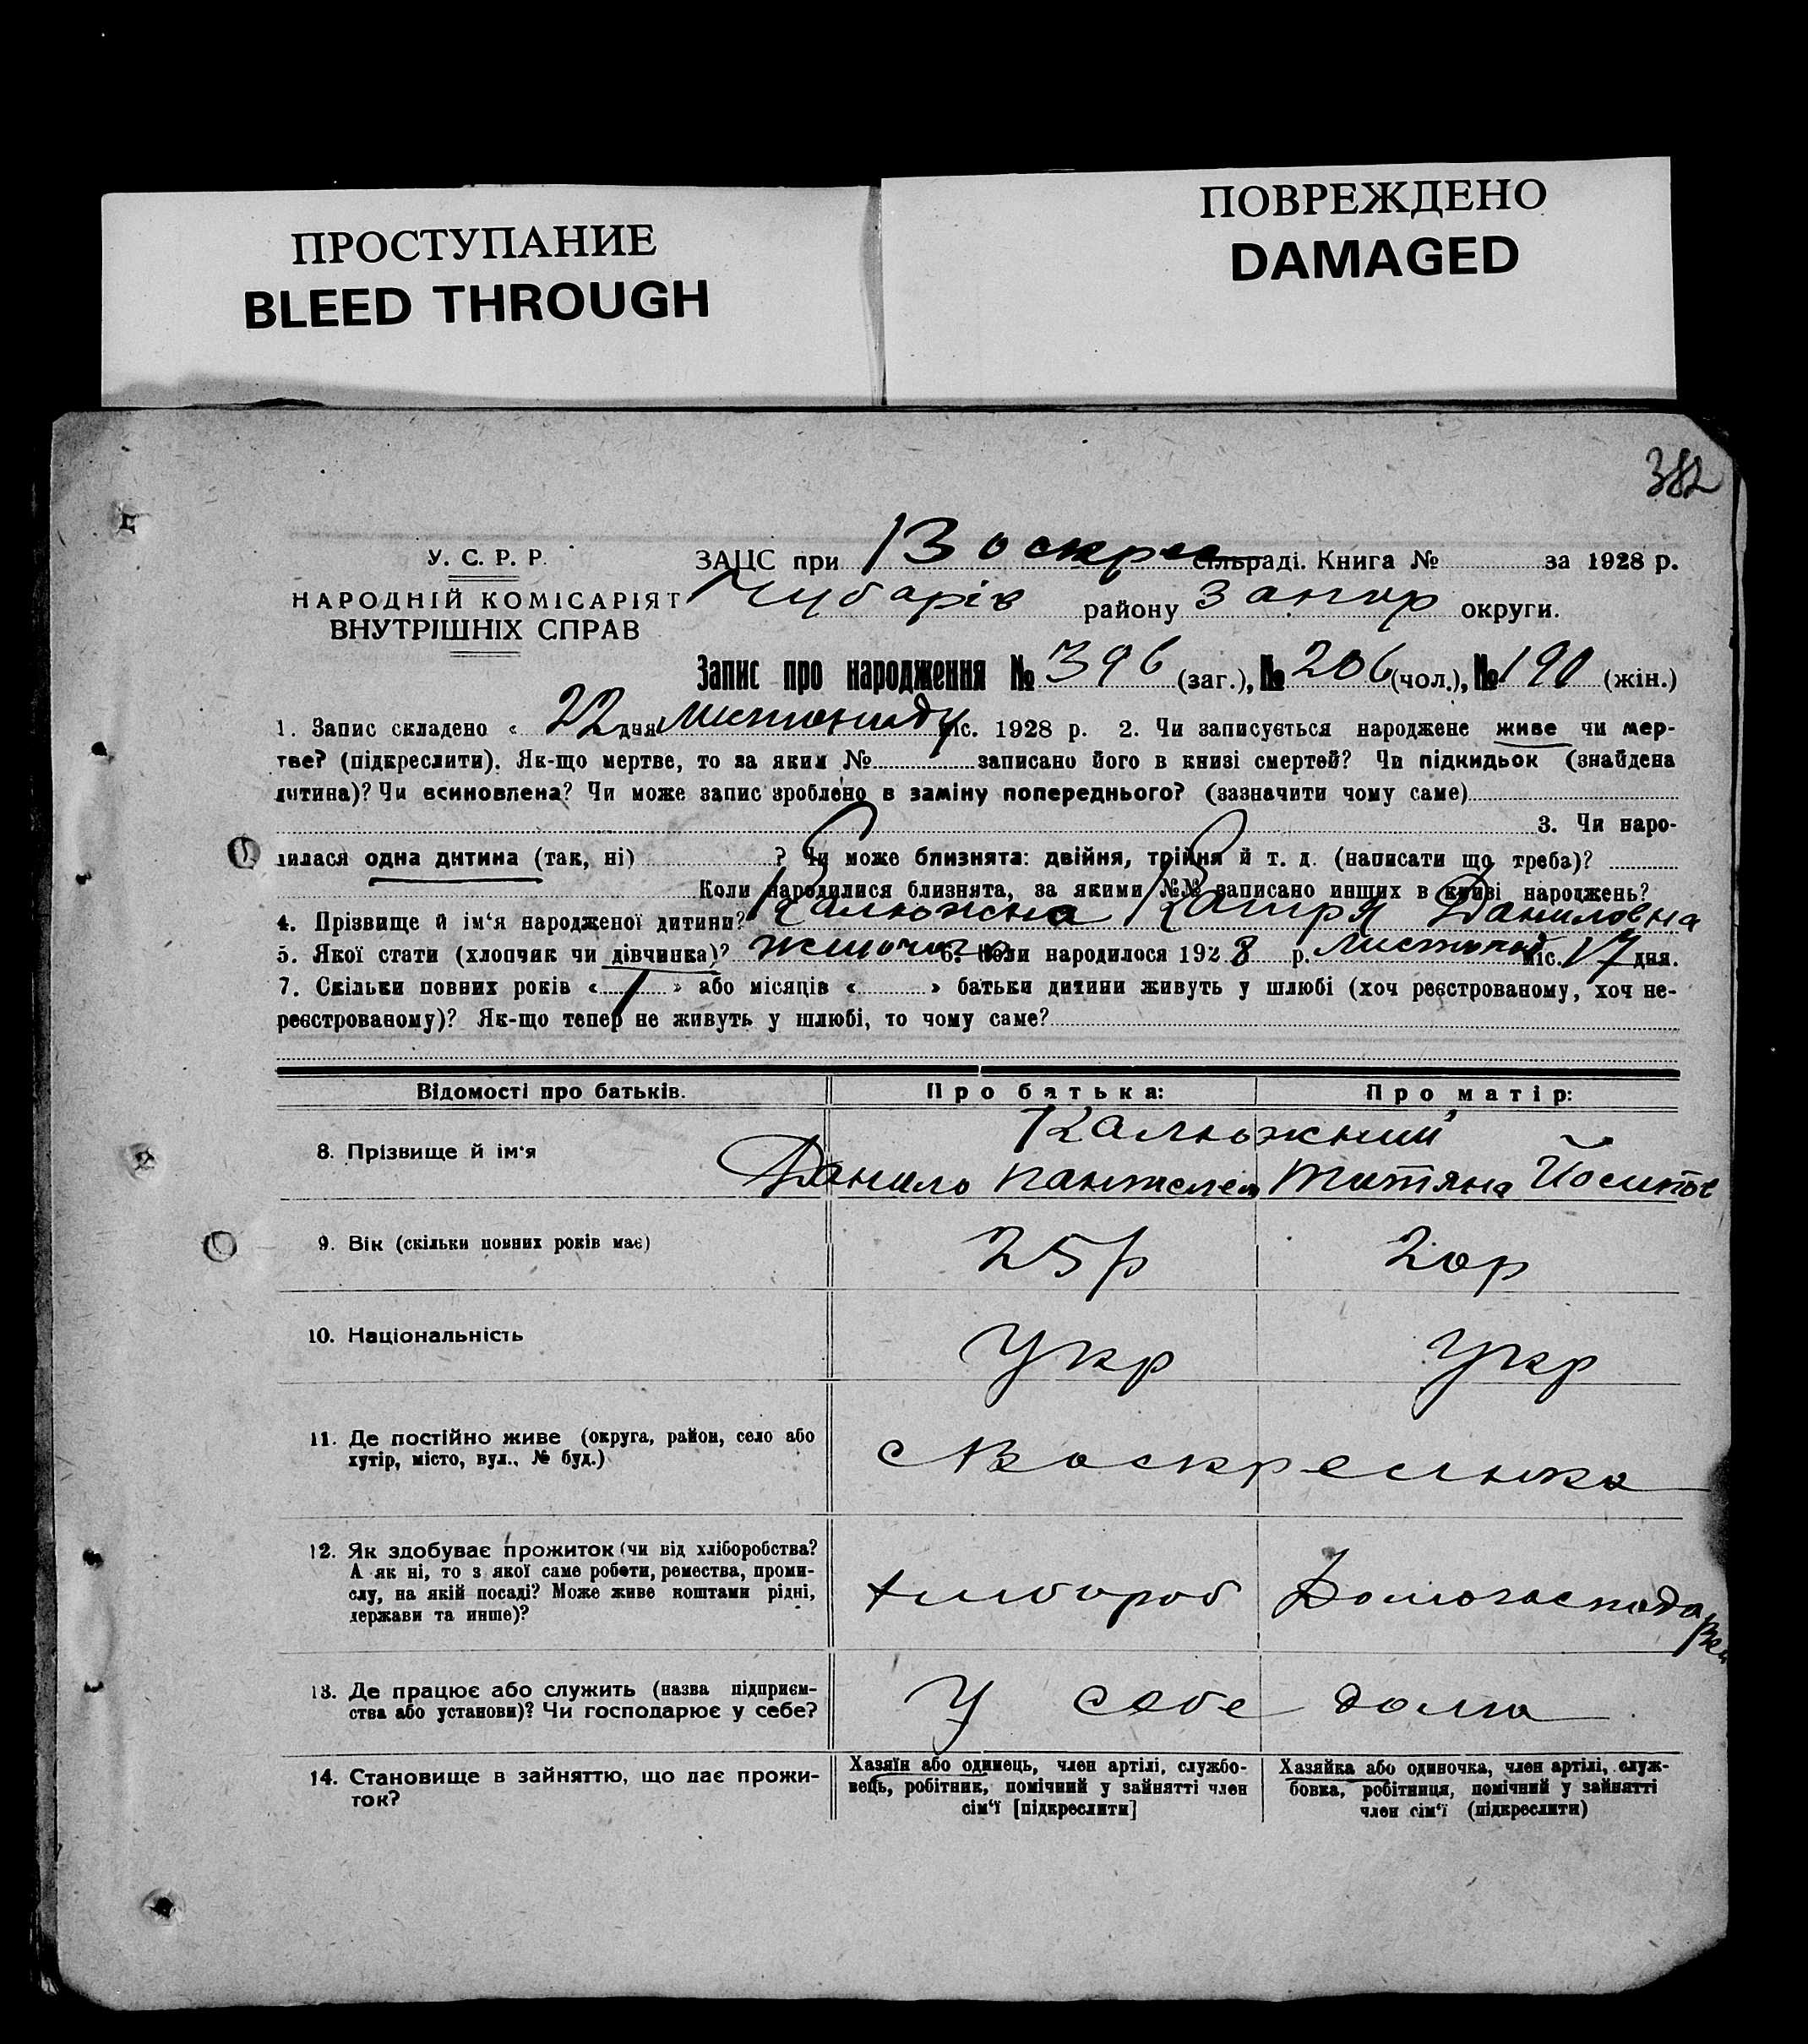 ПРОСТУПАНИЕ
BLEED THROUGH
ПОВРЕЖДЕНО
DAMAGED
382
У. С. Р. Р.
НАРОДНІЙ КОМІСАРІЯТ
ВНУТРІШНІХ СПРАВ
ЗАЦС при Воскрес сільраді. Книга № за 1928 р.
Чубарів району Запор округи.
Запис про народження № 396 (заг.), № 206 (чол.), № 190 (жін.)
1. Запис складено « 22 дня листопаду міс. 1928 р. 2. Чи записується народжене живе чи мер-
тве? (підкреслити). Як-що мертве, то за яким № записано його в книзі смертей? Чи підкидьок (знайдена
дитина)? Чи всиновлена? Чи може запис зроблено в заміну попереднього? (зазначити чому саме)
3. Чи наро-
дилася одна дитина (так, ні) ? Чи може близнята: двійня, трійня й т. д. (написати що треба)?
Коли народилися близнята, за якими №№ записано инших в книзі народжень?
4. Прізвище й ім‘я народженої дитини? Калюжна Катря Даниловна
5. Якої стати (хлопчик чи дівчинка)? жіноча 6. Коли народилося 1928 р. листопад міс. 17 дня.
7. Скільки повних років « 1 » або місяців « » батьки дитини живуть у шлюбі (хоч реєстрованому, хоч не-
реєстрованому)? Як-що тепер не живуть у шлюбі, то чому саме?
Відомості про батьків. Про батька: Про матір:
8. Прізвище й ім‘я Калюжний
Данило Пантелем Титяна Йосипов
9. Вік (скільки повних років має) 25р 20р
10. Національність Укр Укр
11. Де постійно живе (округа, район, село або
хутір, місто, вул., № буд.) с Воскресенка
12. Як здобуває прожиток (чи від хліборобства?
А як ні, то з якої саме роботи, ремества, проми-
слу, на якій посаді? Може живе коштами рідні,
держави та инше)?
хлібороб Домогосподарка
13. Де працює або служить (назва підприєм-
ства або установи)? Чи господарює у себе?
У себе дома
14. Становище в зайняттю, що дає прожи-
ток?
Хазяїн або одинець, член артілі, службо-
вець, робітник, помічний у зайнятті член
сім‘ї [підкреслити]
Хазяйка або одиночка, член артілі, служ-
бовка, робітниця, помічний у зайнятті
член сім‘ї (підкреслити)